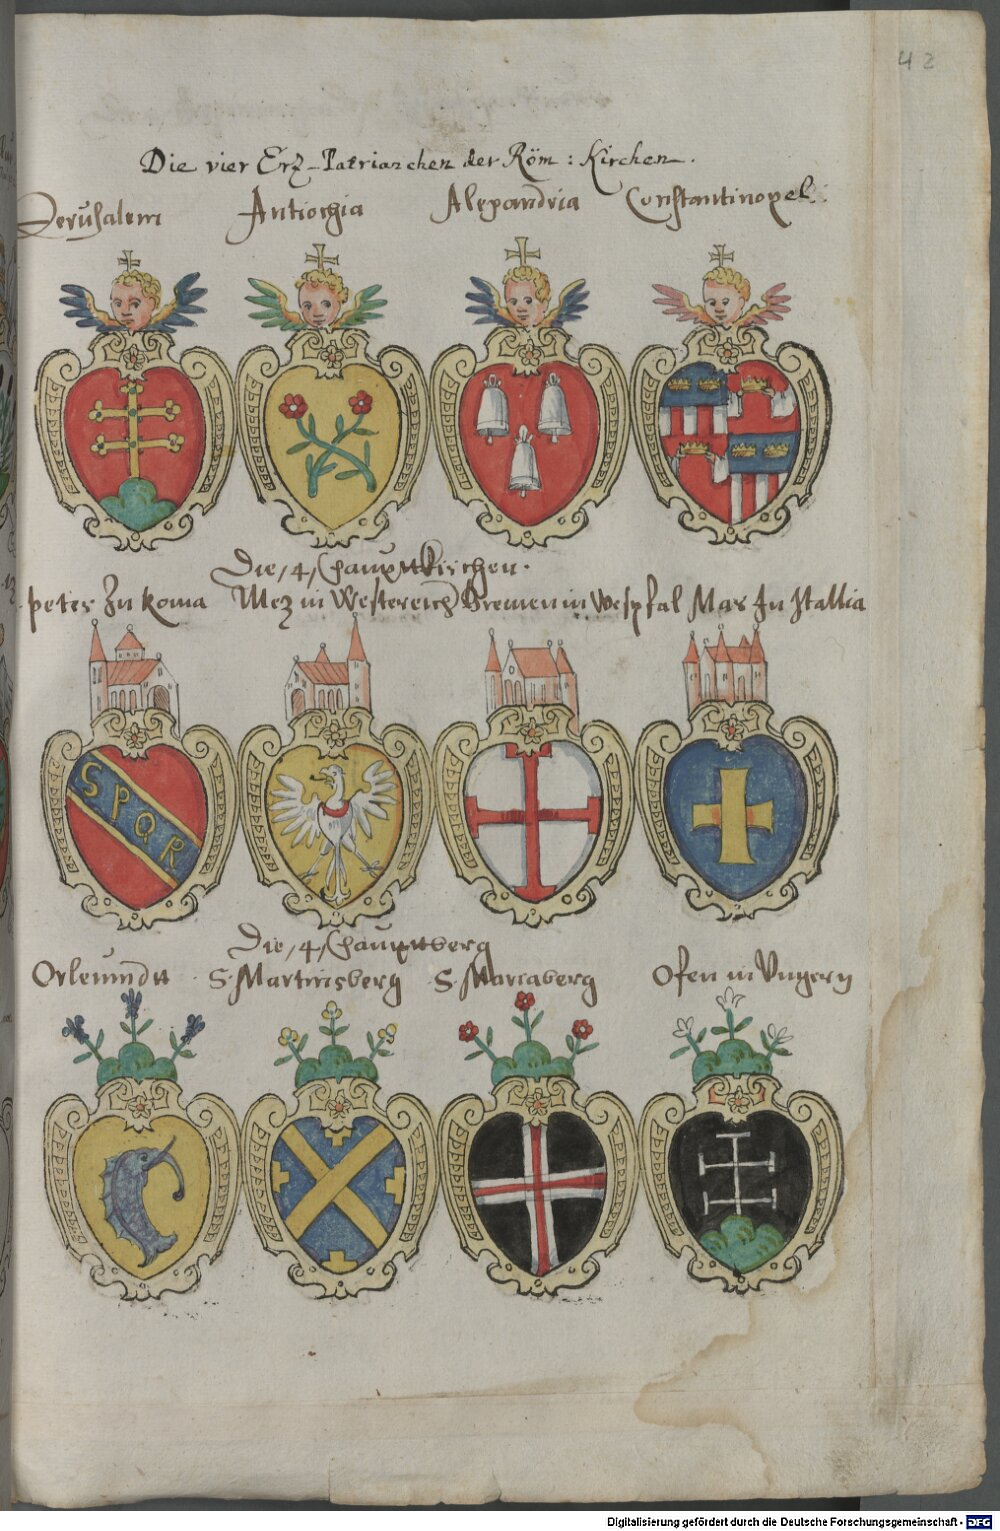 42
Die vier Erz-Patriarchen der Röm: Kirchen.
Jerusalem Antiochia Alexandria Constantinopel.
Die /4/ Haupttkirchen.
peter Zu Roma Mez in Westereich Bremen in Wespfal Mar In Itallia
S P Q R
Die /4/ Haupttberg
S. Martinsberg S. Mariaberg Ofen in Vngern
Digitalisierung gefördert durch die Deutsche Forschungsgemeinschaft - DFG